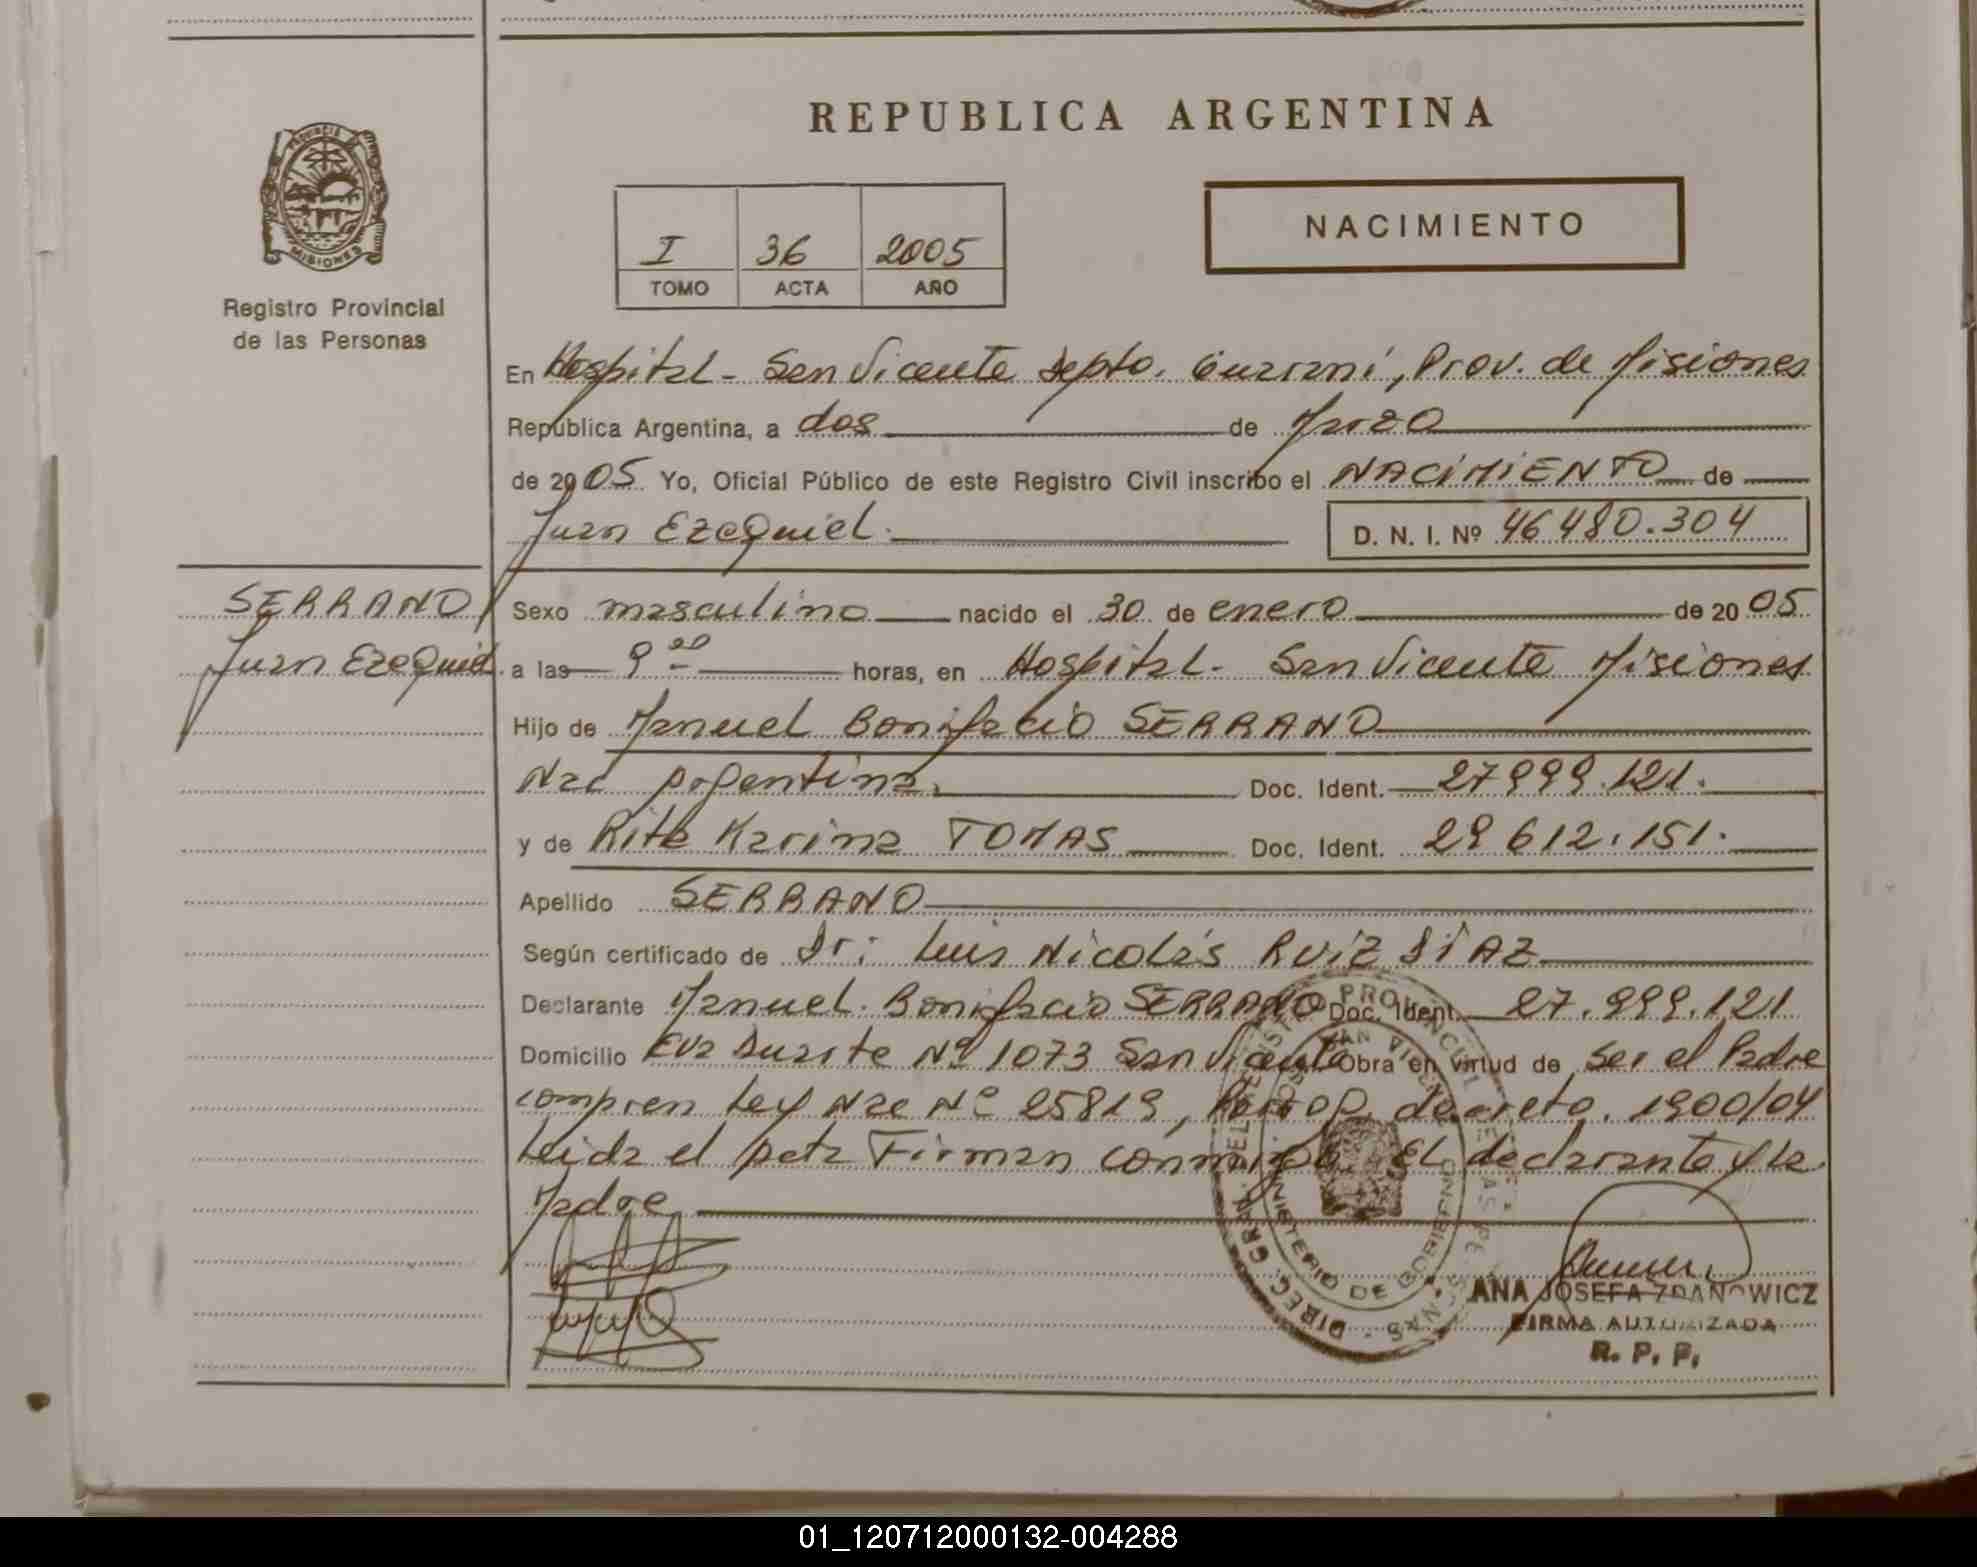 REPUBLICA ARGENTINA
PROVINCIA
MISIONES
Registro Provincial
de las Personas
I 36 2005
TOMO ACTA AÑO
NACIMIENTO
En Hospital - San Vicente Depto. Guaraní, Prov. de Misiones
República Argentina, a dos de Marzo
de 2005 Yo, Oficial Público de este Registro Civil inscribo el NACIMIENTO de
Juan Ezequiel.
D. N. I. Nº 46480.304
SERRANO
Juan Ezequiel
Sexo masculino nacido el 30 de enero de 2005
a las 9 20 horas, en Hospital - San Vicente Misiones
Hijo de Manuel Bonifacio SERRANO
Nac Argentina. Doc. Ident. 27999.121.
y de Rita Karina TOMAS Doc. Ident. 29612.151.
Apellido SERRANO
Según certificado de Dr: Luis Nicolás RUIZ DIAZ
Declarante Manuel Bonifacio SERRANO Doc. Ident. 27.999.121
Domicilio Eva Duarte Nº 1073 San Vicente Obra en virtud de ser el Padre
compren Ley Nac Nº 25819, decreto. 1900/04
Leida el Acta Firman conmigo El declarante y la
Madre
MINISTERIO DE GOBIERNO
ANA JOSEFA ZDANOWICZ
FIRMA AUTORIZADA
R. P. P.
01_120712000132-004288